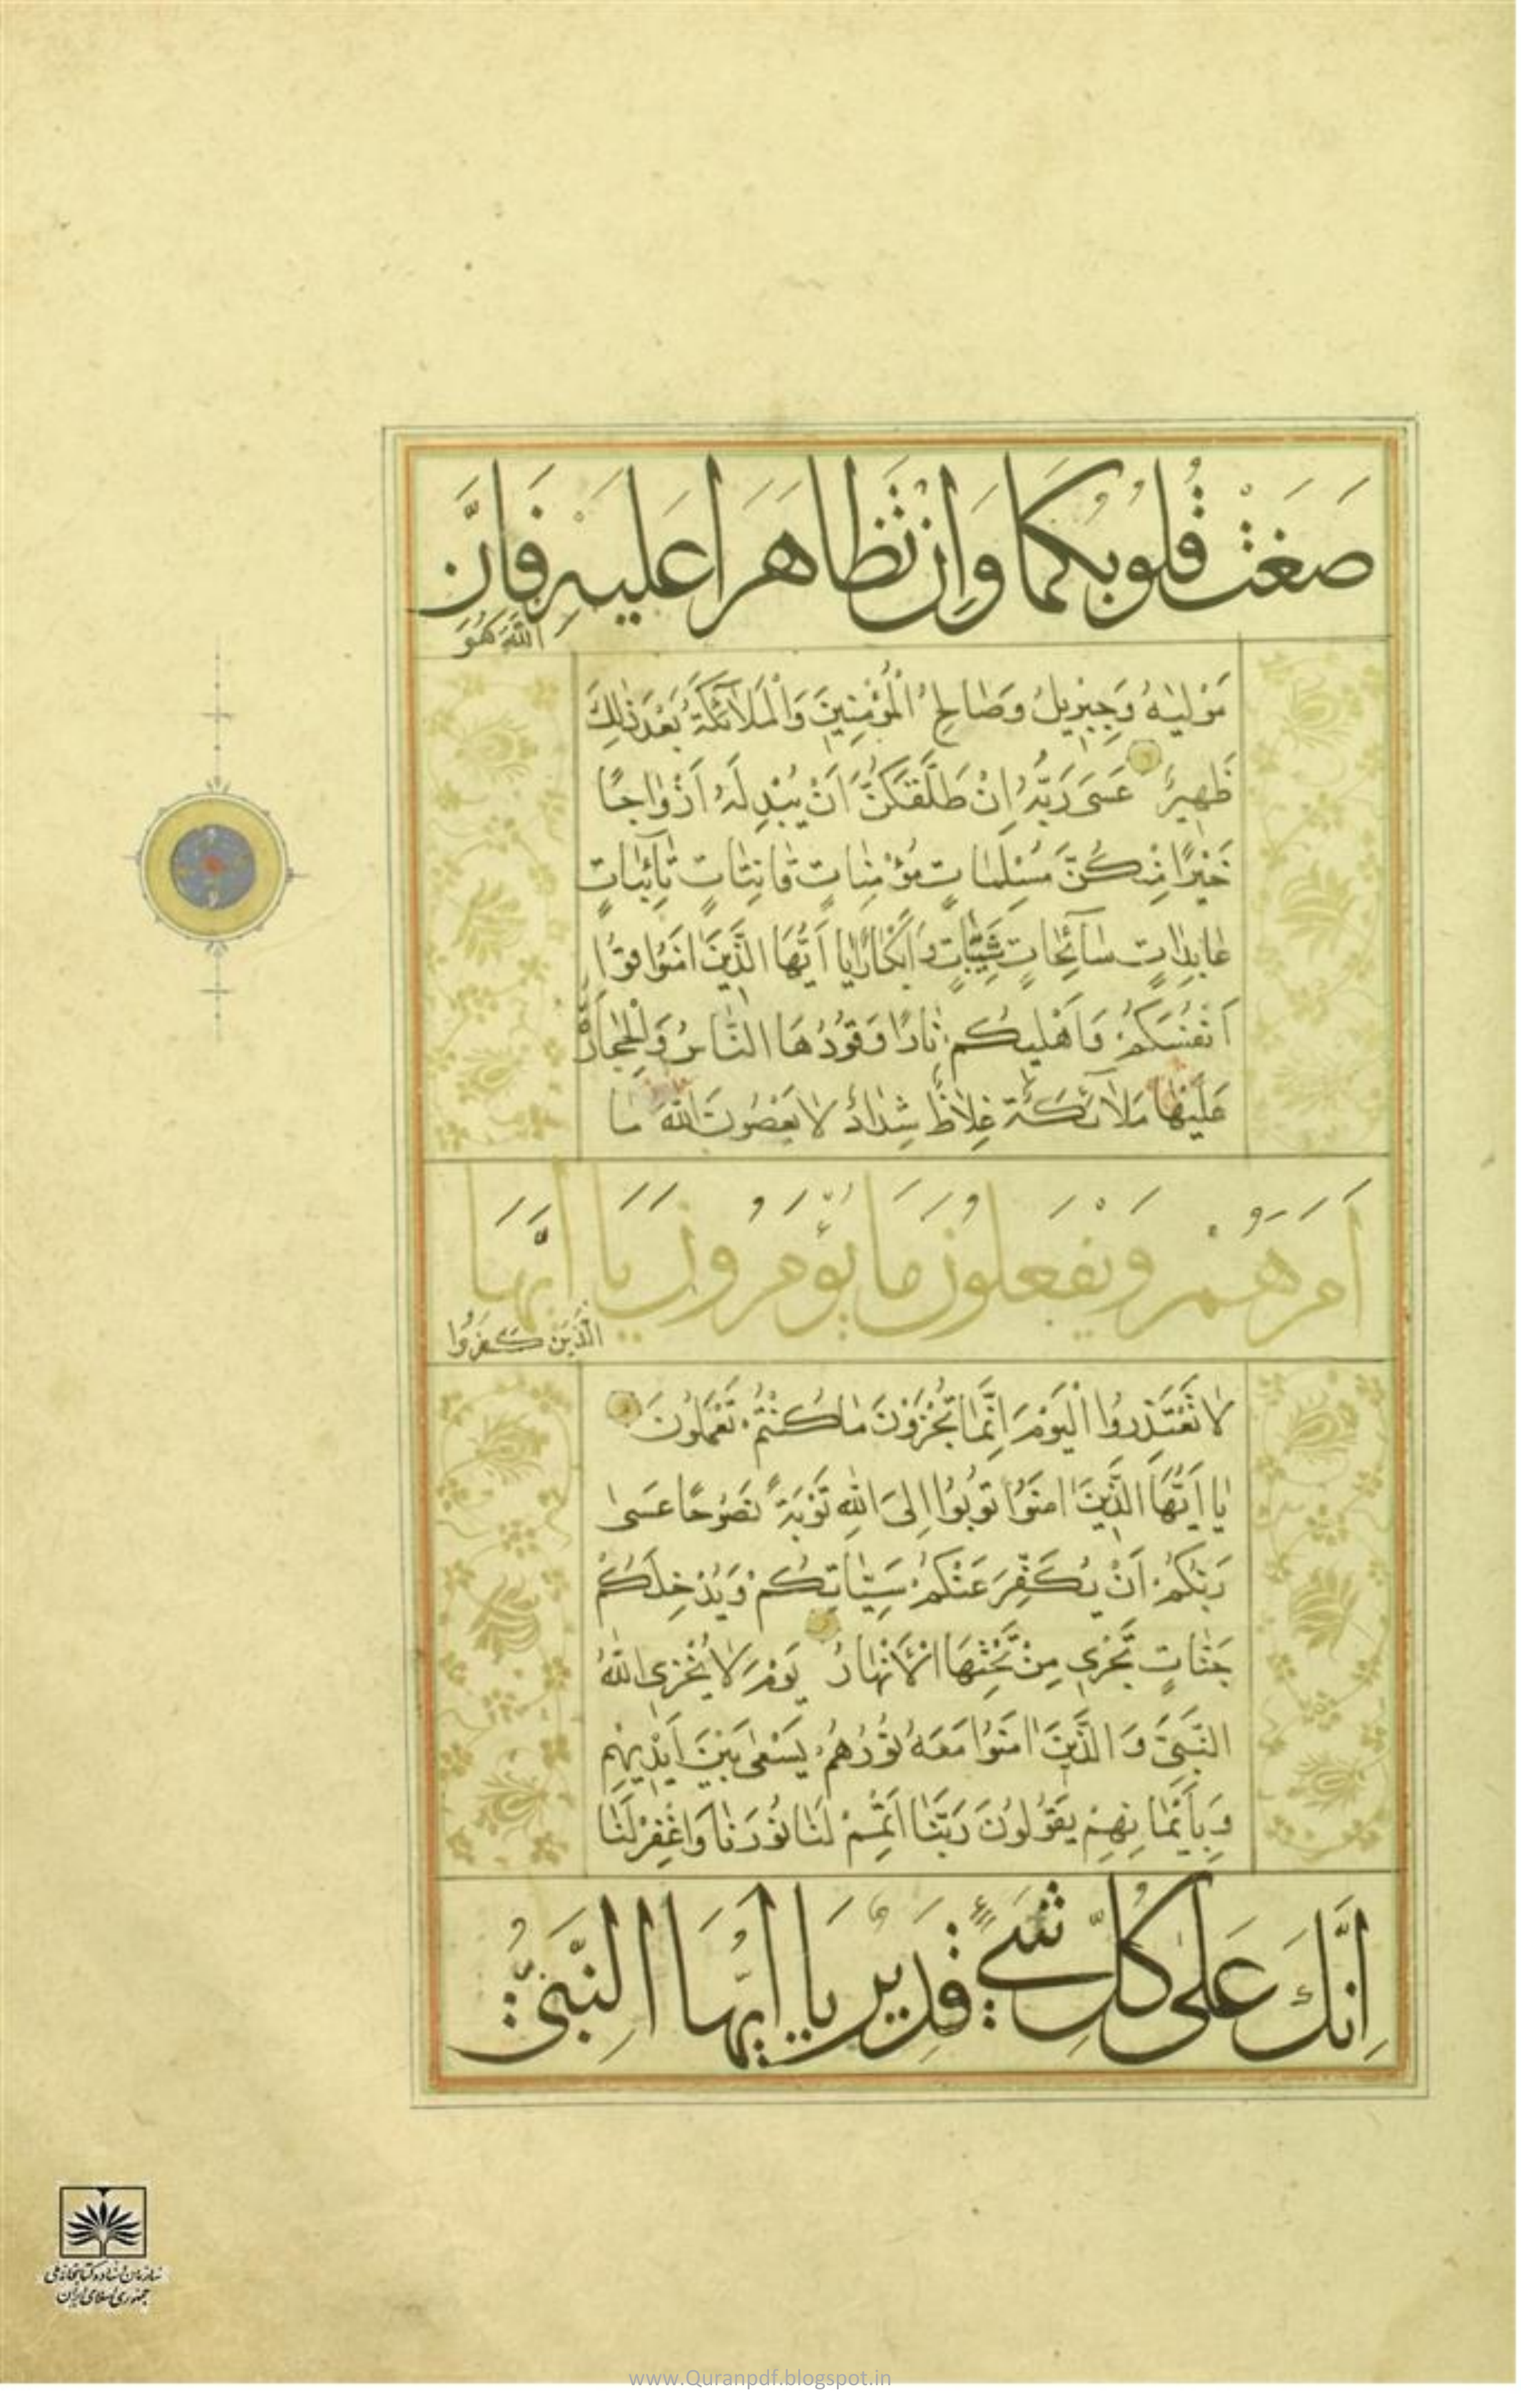 صَغَتْ قُلُوبُكُمَا وَاِنْ تَظَاهَرَا عَلَيْهِ فَاِنَّ
اللّٰهَ هُوَ
مَوْلَيٰهُ وَجِبْرِيلُ وَصَالِحُ الْمُؤْمِنِينَ وَالْمَلَآئِكَةُ بَعْدَ ذٰلِكَ
ظَهِيرٌ عَسَى رَبُّهُ اِنْ طَلَّقَكُنَّ اَنْ يُبْدِلَهُ اَزْوَاجًا
خَيْرًا مِنْكُنَّ مُسْلِمَاتٍ مُؤْمِنَاتٍ قَانِتَاتٍ تَآئِبَاتٍ
عَابِدَاتٍ سَآئِحَاتٍ ثَيِّبَاتٍ وَاَبْكَارًا يَا اَيُّهَا الَّذِينَ اٰمَنُوا قُوا
اَنْفُسَكُمْ وَاَهْلِيكُمْ نَارًا وَقُودُهَا النَّاسُ وَالْحِجَارَةُ
عَلَيْهَا مَلَآئِكَةٌ غِلَاظٌ شِدَادٌ لَا يَعْصُونَ اللّٰهَ مَا
اَمَرَهُمْ وَيَفْعَلُونَ مَا يُؤْمَرُونَ يَا اَيُّهَا
الَّذِينَ كَفَرُوا
لَا تَعْتَذِرُوا الْيَوْمَ اِنَّمَا تُجْزَوْنَ مَا كُنْتُمْ تَعْمَلُونَ
يَا اَيُّهَا الَّذِينَ اٰمَنُوا تُوبُوا اِلَى اللّٰهِ تَوْبَةً نَصُوحًا عَسَىٰ
رَبُّكُمْ اَنْ يُكَفِّرَ عَنْكُمْ سَيِّئَاتِكُمْ وَيُدْخِلَكُمْ
جَنَّاتٍ تَجْرِي مِنْ تَحْتِهَا الْاَنْهَارُ يَوْمَ لَا يُخْزِي اللّٰهُ
النَّبِيَّ وَالَّذِينَ اٰمَنُوا مَعَهُ نُورُهُمْ يَسْعٰى بَيْنَ اَيْدِيهِمْ
وَبِاَيْمَانِهِمْ يَقُولُونَ رَبَّنَا اَتْمِمْ لَنَا نُورَنَا وَاغْفِرْ لَنَا
اِنَّكَ عَلىٰ كُلِّ شَيْءٍ قَدِيرٌ يَا اَيُّهَا النَّبِيُّ
سازمان اسناد و کتابخانه ملی
جمهوری اسلامی ایران
www.Quranpdf.blogspot.in